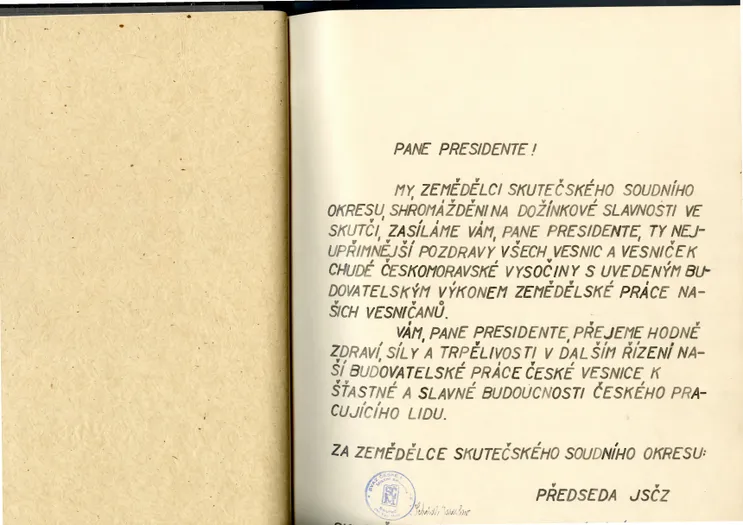 PANE PRESIDENTE!
MY, ZEMĚDĚLCI SKUTEČSKÉHO SOUDNÍHO
OKRESU, SHROMÁŽDĚNI NA DOŽÍNKOVÉ SLAVNOSTI VE
SKUTČI, ZASÍLÁME VÁM, PANE PRESIDENTE, TY NEJ-
UPŘIMNĚJŠÍ POZDRAVY VŠECH VESNIC A VESNIČEK
CHUDÉ ČESKOMORAVSKÉ VYSOČINY S UVEDENÝM BU-
DOVATELSKÝM VÝKONEM ZEMĚDĚLSKÉ PRÁCE NA-
ŠICH VESNIČANŮ.
VÁM, PANE PRESIDENTE, PŘEJEME HODNĚ
ZDRAVÍ, SÍLY A TRPĚLIVOSTI V DALŠÍM ŘÍZENÍ NA-
ŠÍ BUDOVATELSKÉ PRÁCE ČESKÉ VESNICE K
ŠŤASTNÉ A SLAVNÉ BUDOUCNOSTI ČESKÉHO PRA-
CUJÍCÍHO LIDU.
ZA ZEMĚDĚLCE SKUTEČSKÉHO SOUDNÍHO OKRESU:
PŘEDSEDA JSČZ